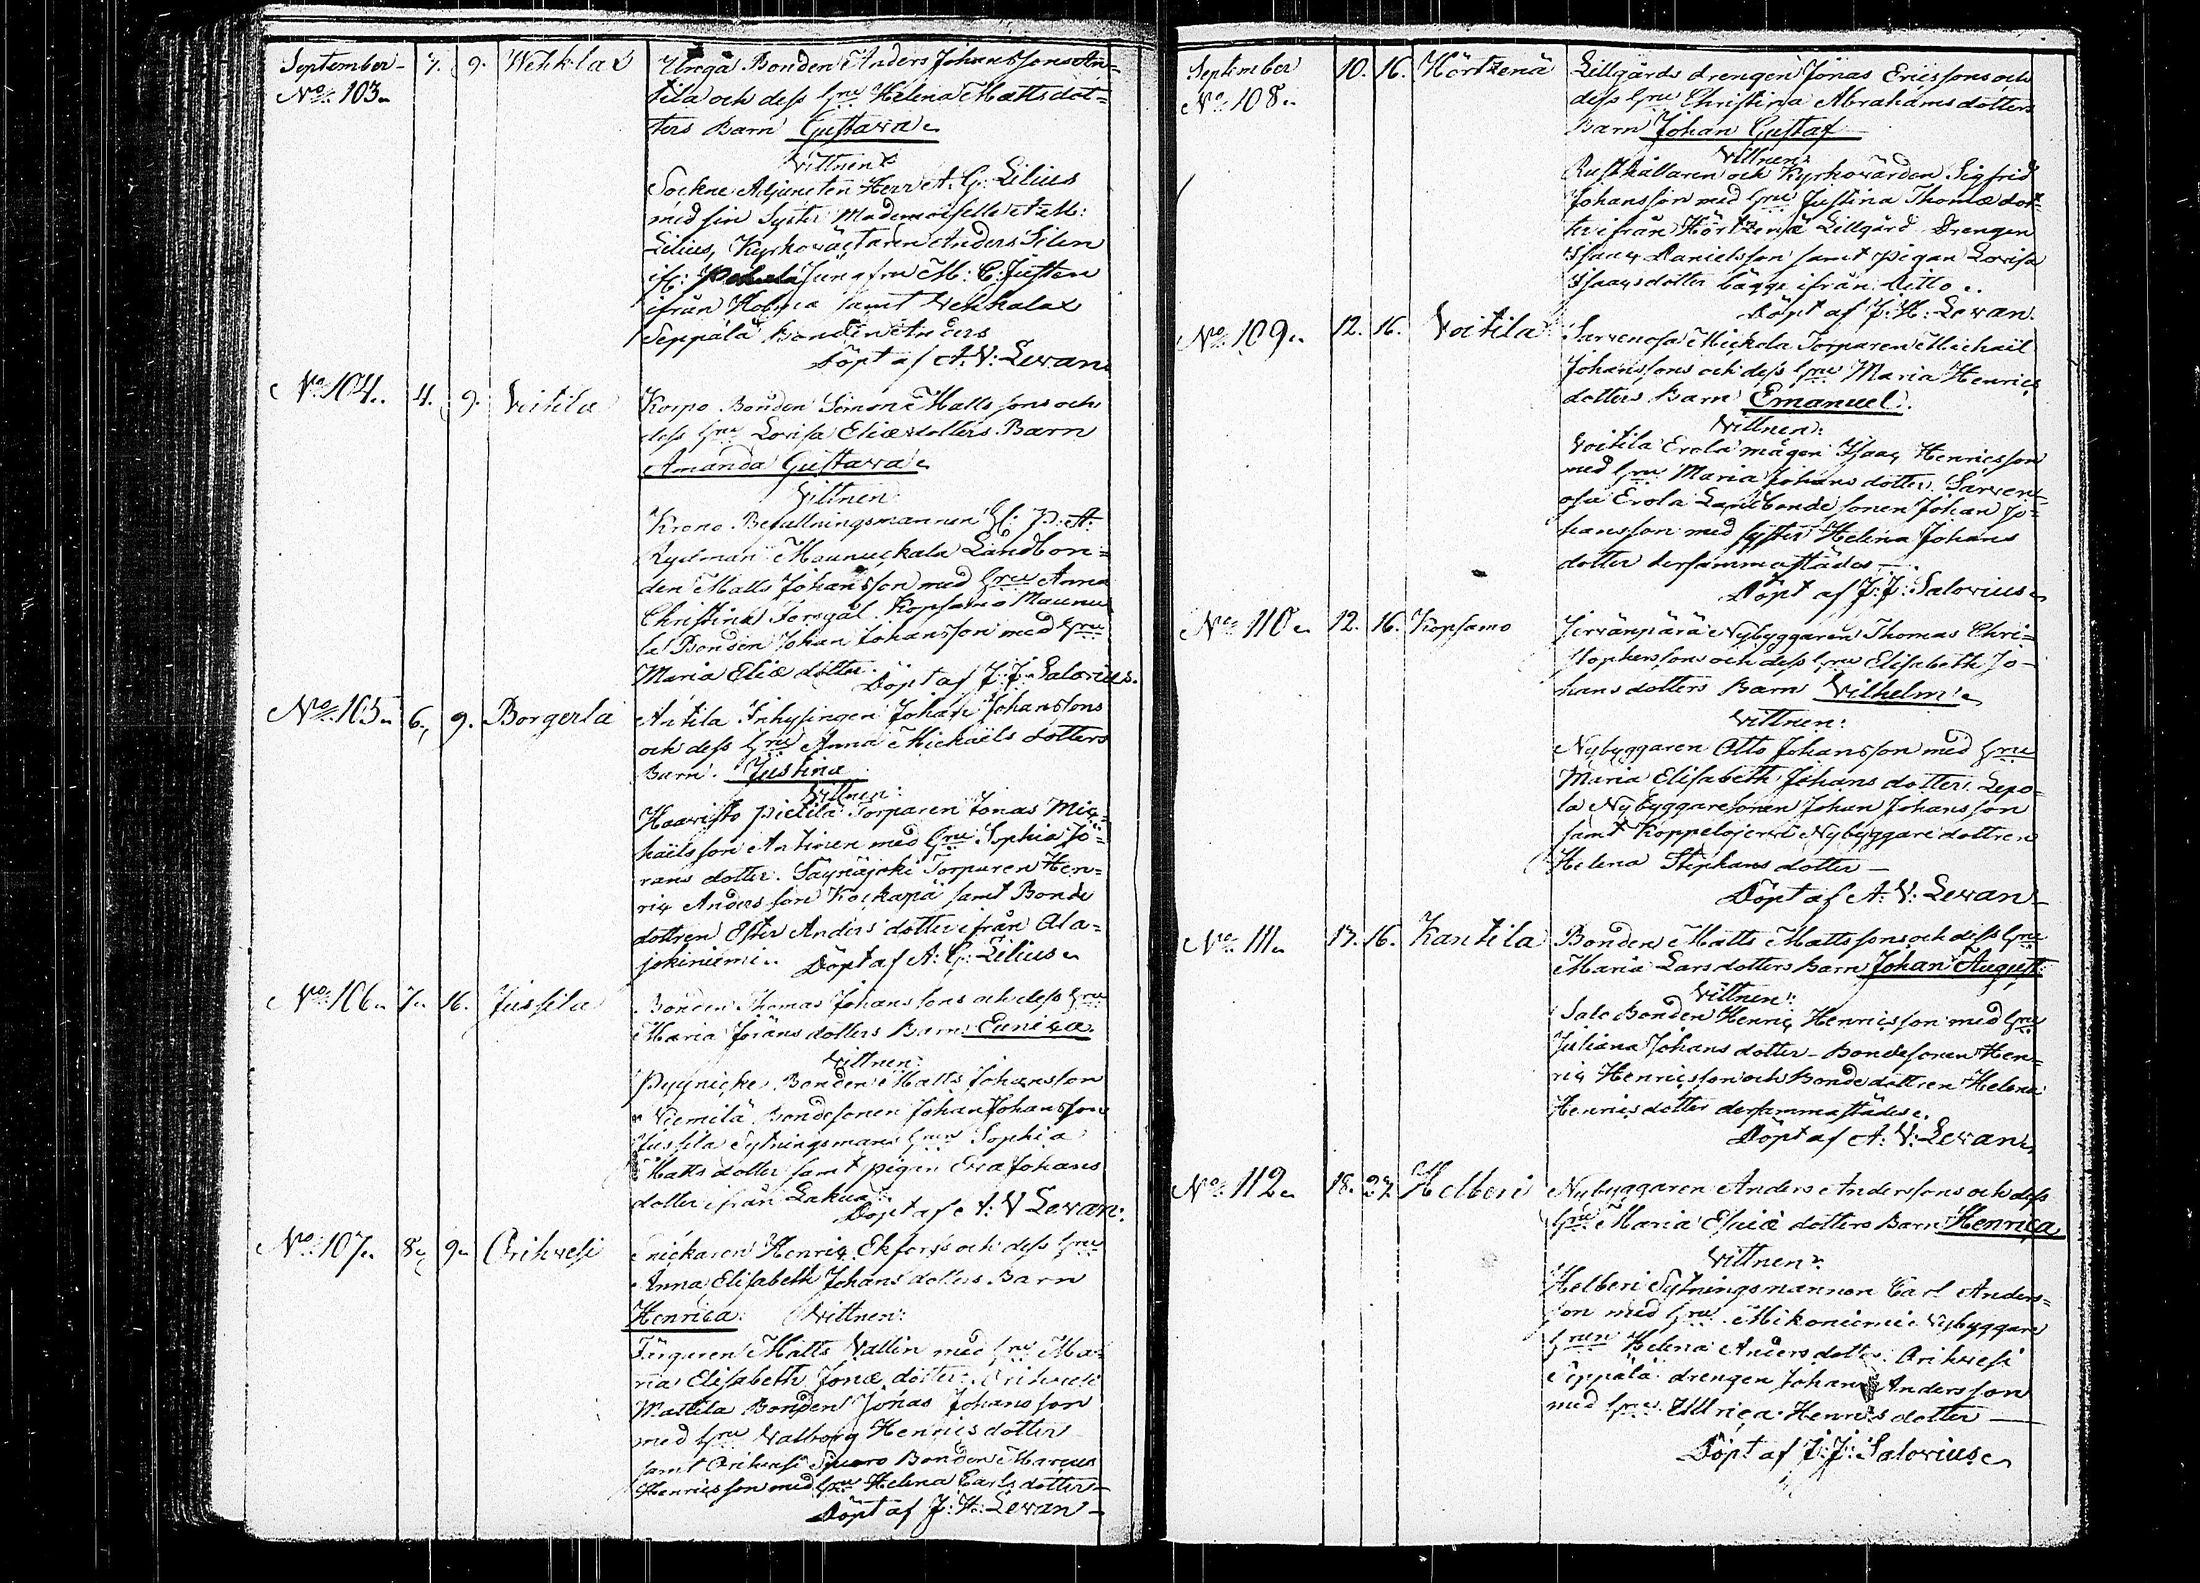 September 7. 9. Wehklax Anders Johanssons An=
No. 103. tila och dess hru Helena Mattsdot=
ters Barn Gustava
Vittnen:
Sockne Adjuncten Herr A. G. Lilius
med sin Syster Mademoiselle
Lilius, Anders Silen
Jungfru M: C: Justen
ifrån samt Vehkalax
Seppälä Bonden Anders
Döpt af A. V: Levan
No. 104. 4. 9. Voitila Korpo Bonden Simon Matts sons och
dess hru Lovisa Eliædotters Barn
Amanda Gustava
Vittnen:
Krono Befallningsmannen P. A.
Landbon=
den Matts Johansson med hru Anna
Christina Kopsamo Maunu
la Bonden Johan Johansson med hru
Maria Eliæ dotter. Döpt af J: J: Salovius.
No. 105. 6. 9. Borgerla Antila Inhysingen Johan Johanssons
och dess hru Anna Michaëls dotters
Barn. Justina
Vittnen:
Haavisto Pietilä Torparen Jonas Mic=
haëlsson Antinen med hru Sophia Jö=
rans dotter. Säynäjoki Torparen Hen=
ric Anders son samt Bonde
dottren Ester Anders dotter ifrån Ala=
jokiniemi. Döpt af A: G: Lilius.
No. 106. 7. 16. Jussila Bonden Thomas Johans sons och dess hru
Maria Jörans dotters Barn Eunica
Vittnen:
Pyynicke Bonden Matts Johansson
Niemilä Bondesonen Johan Johansson
Jussila Sytningsmans hrun Sophia
Matts dotter samt pigan Eva Johans
dotter ifrån Lakua.
Döpt af A: V Levan:
No. 107. 8. 9. Orihvesi Snickaren Henric Ekfors och dess hru
Anna Elisabeth Johans dotters Barn
Henrica: Vittnen:
Färgaren Matts Vallin med hru Ma=
ria Elisabeth Jonæ dotter. Orihvesi
Mattila Bonden Jonas Johansson
med hru Valborg Henrics dotter
samt Orihvesi Bonden Marcus
Henricsson med hru Helena Carls dotter
Döpt af J: H: Levan
September 10. 16. Hörtzenä Lillgårds drengen Jonas Ericssons och
No. 108. dess hru Christina Abrahams dotters
Barn Johan Gustaf
Vittnen:
Rusthållaren och Kyrkovärden Sigfrid
Johansson med hru Justina Thomæ dot=
ter ifrån Hörtzenä Lillgård Drengen
Isaac Danielsson samt pigan Lovisa
Isaacsdotter bägge ifrån Ditto.
Döpt af J: H: Levan
No. 109. 12. 16. Voitila Sarvenosa Michala Torparen Michaël
Johanssons och dess hru Maria Henrics
dotters Barn Emanuel.
Vittnen:
Voitila Erola mågen Isaac Henricsson
med hru Maria Johans dotter. Sarven=
osa Erola Landbonde sonen Johan Jo=
hansson med syster Helena Johans
dotter dersammastädes
Döpt af J: J: Salovius
No. 110. 12. 16. Kopsamo Jervänpärä Nybyggaren Thomas Chri=
stophers sons och dess hru Elisabeth Jo=
hans dotters Barn Vilhelm
Vittnen:
Nybyggaren Otto Johansson med hru
Maria Elisabeth Johans dotter. Lepo=
la Nybyggaresonen Johan Johansson
samt Koppelojervi Nybyggare dottren
Helena Stephans dotter
Döpt af A: V: Levan
No. 111. 13. 16. Kantila Bonden Matts Mattssons och dess hru
Maria Lars dotters Barn Johan August.
Vittnen:
Salo Bonden Henric Henricsson med hru
Juliana Johans dotter Bondesonen Hen=
ric Henricsson och Bonde dottren Helena
Henricsdotter dersammastädes.
Döpt af A: V: Levan
No. 112. 18. 27. Helberi Nybyggaren Anders Anderssons och dess
hru Maria dotters Barn Henrica
Vittnen:
Helberi Sytningsmannen Carl Anders=
son med hru. Mikoniemi Nybyggare
hrun Helena Anders dotter. Orihvesi
Seppälä drengen Johan Andersson
med hru Ullrica Henrics dotter
Döpt af J: J: Salovius